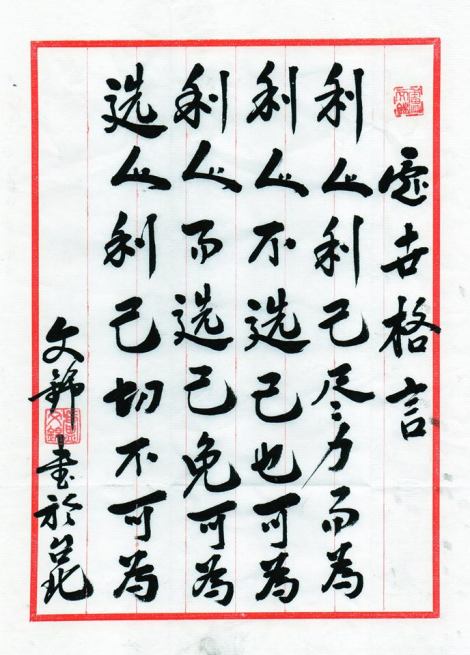 處世格言
利人利己尽力而為
利人不选己也可為
利人而选己免可為
选人利己切不可為
文錦書於台北